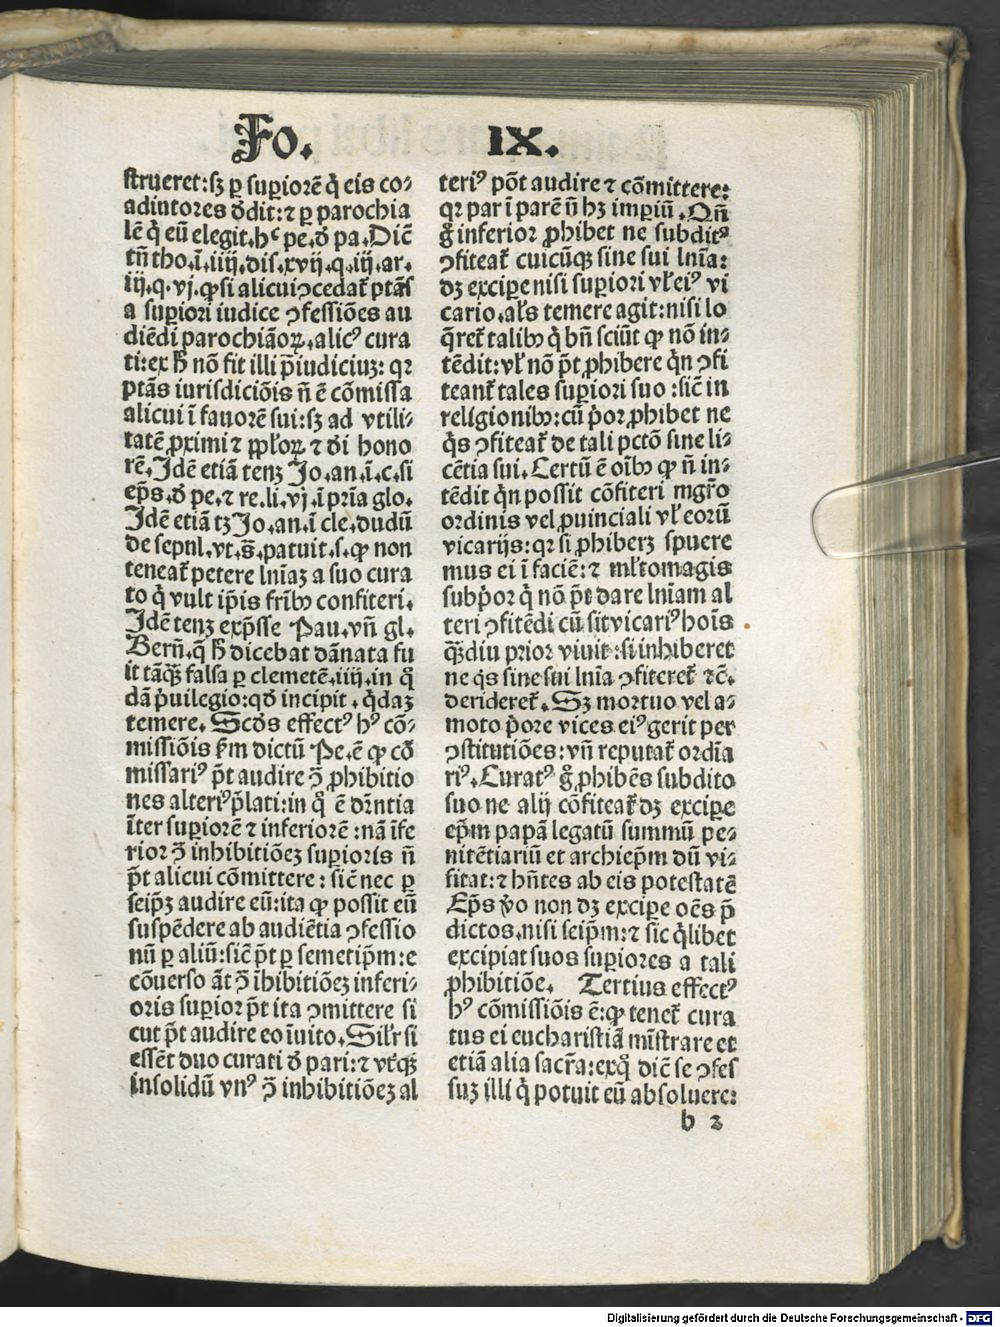 Fo. IX.
strueret:sꝫ ꝑ suꝑiorē q̇ eis co⸗
adiutores ꝺdit:⁊ ꝑ parochia
lē q̇ eū elegit.hᶜ pe.ꝺ pa.Dic̄
tn̄ tho.ī.iiij.dis.xvij.q.iij.ar.
iij.q.vj.ꝙ si alicui ꝯcedat᷑ ptās
a suꝑiori iudice ꝯfessiōes au
diēdi parochiāoꝝ.alicꝰ cura
ti:ex h̄ nō fit illi p̄iudiciuꝫ: qꝛ
ptās iurisdiciōis n̄ ē cōmissa
alicui ī fauorē sui:sꝫ ad vtili⸗
tatē ꝓximi ⁊ pp̄loꝝ ⁊ ꝺi hono
rē.Idē etiā tenꝫ Jo.an.ī.c.si
ep̄s.ꝺ pe.⁊ re.li.vj.ī pr̄ia glo.
Idē etiā tꝫ Jo.an.ī cle.dudū
de sepul.vt.s̄.patuit.s.ꝙ non
teneat᷑ petere ln̄iaꝫ a suo cura
to q̇ vult ip̄is fr̄ibꝰ confiteri.
Idē tenꝫ exp̄sse Pau.vn̄ gl.
Bern̄.q̄ h̄ dicebat dānata fu
it tāqꝫ falsa ꝑ clemetē.iiij.in q̊
dā ṗuilegio:qꝺ incipit.q̇daꝫ
temere. Scꝺs effectꝰ hꝰ cō⸗
missiōis ẜm dictū Pe.ē ꝙ cō
missariꝰ p̄t audire ꝯ̄ ꝓhibitio
nes alteriꝰ p̄lati:in q̊ ē dr̄ntia
īter suꝑiorē ⁊ inferiorē :nā īfe
rior ꝯ̄ inhibitiōeꝫ suꝑioris n̄
p̄t alicui cōmittere: sic̄ nec ꝑ
seip̄ꝫ audire eū:ita ꝙ possit eū
suspēdere ab audiētia ꝯfessio
nū ꝑ aliū:sic̄ p̄t ꝑ semetip̄m:e
cōuerso āt ꝯ̄ īhibitiōeꝫ inferi⸗
oris suꝑior p̄t ita ꝯmittere si
cut p̄t audire eo īuito.Silr̄ si
essēt duo curati ꝺ pari:⁊ vtqꝫ
insolidū vnꝰ ꝯ̄ inhibitiōeꝫ al
teriꝰ pōt audire ⁊ cōmittere:
qꝛ par ī parē n̄ hꝫ imꝑiū.Qn̄
g̊ inferior ꝓhibet ne subditꝰ
ꝯfiteat᷑ cuicūqꝫ sine sui ln̄ia:
dꝫ exciꝑe nisi suꝑiori vl̄ eiꝰ vi
cario.al̄s temere agit:nisi lo
q̄ret᷑ talibꝰ q̇ bn̄ sciūt ꝙ nō in⸗
tēdit:vl̄ nō p̄t ꝓhibere q̇n ꝯfi
teant᷑ tales suꝑiori suo :sic̄ in
religionibꝰ:cū ṗor ꝓhibet ne
q̇s ꝯfiteat᷑ de tali pctō sine li⸗
cētia sui.Certū ē oībꝰ ꝙ n̄ in⸗
tēdit q̇n possit cōfiteri mgr̄o
ordinis vel ꝓuinciali vl̄ eorū
vicarijs:qꝛ si ꝓhiberꝫ spuere
mus ei ī faciē:⁊ ml̄tomagis
subṗor q̇ nō p̄t dare ln̄iam al
teri ꝯfitēdi cū sit vicariꝰ hoīs
qꝫdiu prior viuit:si inhiberet
ne q̇s sine sui ln̄ia ꝯfiteret᷑ ⁊c̄.
derideret᷑.Sꝫ mortuo vel a⸗
moto ṗore vices eiꝰ gerit per
ꝯstitutiōes:vn̄ reputat᷑ ordīa
riꝰ.Curatꝰ g̊ ꝓhibēs subdito
suo ne alij cōfiteat᷑ dꝫ exciꝑe
ep̄m papā legatū summū pe⸗
nitētiariū et archiep̄m dū vi⸗
sitat:⁊ hn̄tes ab eis potestatē
Ep̄s v̊o non dꝫ exciꝑe oēs p̄
dictos.nisi seip̄m:⁊ sic q̇libet
excipiat suos suꝑiores a tali
ꝓhibitiōe. Tertius effectꝰ
hꝰ cōmissiōis ē:ꝙ tenet᷑ cura
tus ei eucharistiā mīstrare et
etiā alia sacr̄a:ex q̊ dic̄ se ꝯfes
suꝫ illi q̇ potuit eū absoluere:
b 3
Digitalisierung gefördert durch die Deutsche Forschungsgemeinschaft - DFG